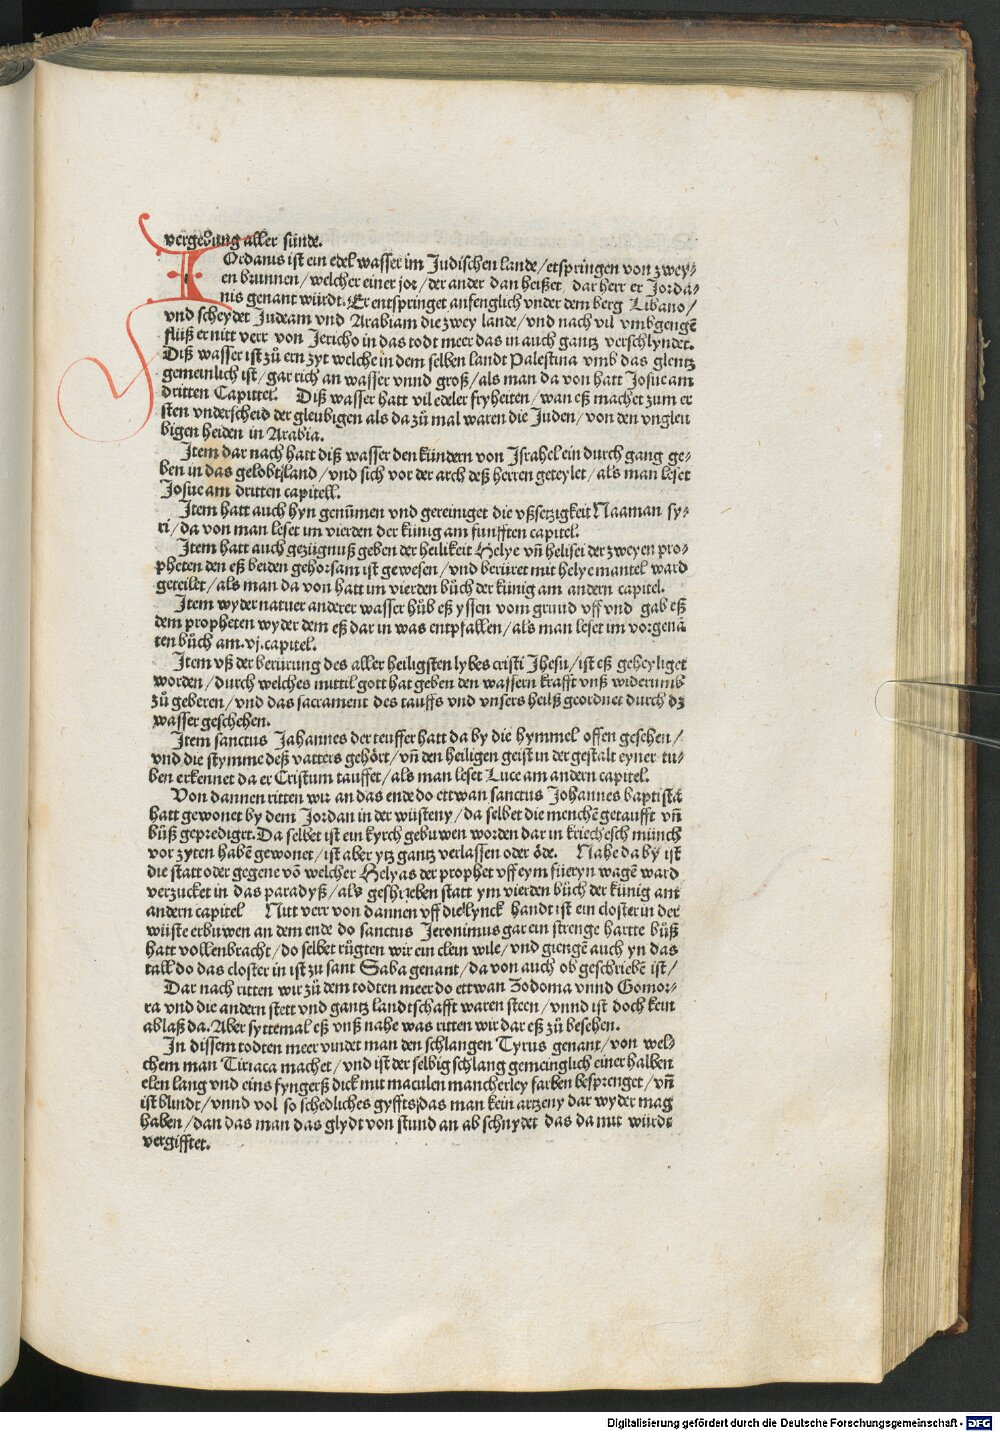 vergebung aller sünde.
IOrdanis ist ein edel wasser im Judischen lande/etspringen von zwey⸗
en brunnen/welcher einer jor/der ander dan heißet/dar herr er Jorda⸗
nis genant würdt. Er entspringet anfenglich vnder dem berg Libano/
vnd scheydet Judeam vnd Arabiam die zwey lande/vnd nach vil vmbgengē
flüß er nitt verr von Jericho in das todt meer das in auch gantz verschlyndet.
Diß wasser ist zů ern zyt welche in dem selben landt Palestina vmb das glentz
gemeinlich ist/gar rich an wasser vnnd groß/als man da von hatt Josue am
dritten Capittel. Diß wasser hatt vil edeler fryheiten/wan eß machet zum er
sten vnderscheid der gleubigen als da zů mal waren die Juden/von den vngleu
bigen heiden in Arabia.
Item dar nach hatt diß wasser den kündern von Israhel ein durch gang ge⸗
ben in das gelobt land/vnd sich vor der arch deß herren geteylet/als man leset
Josue am dritten capitell.
Item hatt auch hyn genūmen vnd gereiniget die vßsetzigkeit Naaman sy⸗
ri/da von man leset im vierden der künig am funfften capitel.
Item hatt auch gezügnuß geben der heilikeit Helye vñ helisei der zweyen pro⸗
pheten den eß beiden gehorsam ist gewesen/vnd berüret mit helye mantel ward
geteilet/als man da von hatt im vierden bůch der künig am andern capitel.
Item wyder natuer anderer wasser hůb eß yssen vom grund vff vnd gab eß
dem propheten wyder dem eß dar in was entpfallen/als man leset im vorgenā
ten bůch am.vj.capitel.
Item vß der berürung des aller heiligsten lybes cristi Jhesu/ist eß geheyliget
worden/durch welches mittil gott hat geben den wassern krafft vnß widerumb
zů geberen/vnd das sacrament des tauffs vnd vnsers heilß geordnet durch dz
wasser geschehen.
Item sanctus Jahannes der teuffer hatt da by die hymmel offen gesehen/
vnd die stymme deß vatters gehört/vñ den heiligen geist in der gestalt eyner tu⸗
ben erkennet da er Cristum tauffet/als man leset Luce am andern capitel.
Von dannen ritten wir an das ende do ettwan sanctus Johannes baptistā
hatt gewonet by dem Jordan in der wüsteny/da selbet die menchē getaufft vñ
bůß geprediget. Da selbet ist ein kyrch gebuwen worden dar in kriechesch münch
vor zyten habē gewonet/ist aber ytz gantz verlassen oder öde. Nahe da by ist
die statt oder gegene vō welcher Helyas der prophet vff eym füeryn wagē ward
verzucket in das paradyß/als geschrieben statt ym vierden bůch der künig am
andern capitel Nitt verr von dannen vff die lynck handt ist ein closter in der
wüste erbuwen an dem ende do sanctus Jeronimus gar ein strenge hartte bůß
hatt vollenbracht/do selbet růgten wir ein clein wile/vnd giengē auch yn das
tall do das closter in ist zu sant Saba genant/da von auch ob geschriebē ist/
Dar nach ritten wir zů dem todten meer do ettwan Zodoma vnnd Gomor⸗
ra vnd die andern stett vnd gantz landtschafft waren steen/vnnd ist doch kein
ablaß da. Aber syttemal eß vnß nahe was ritten wir dar eß zů besehen.
In dissem todten meer vindet man den schlangen Tyrus genant/von wel⸗
chem man Tiriaca machet/vnd ist der selbig schlang gemeinglich einer halben
elen lang vnd eins fyngerß dick mit maculen mancherley farben besprenget/vñ
ist blindt/vnnd vol so schedliches gyffts das man kein artzeny dar wyder mag
haben/dan das man das glydt von stund an ab schnydet das da mit würdt
vergifftet.
Digitalisierung gefördert durch die Deutsche Forschungsgemeinschaft - DFG